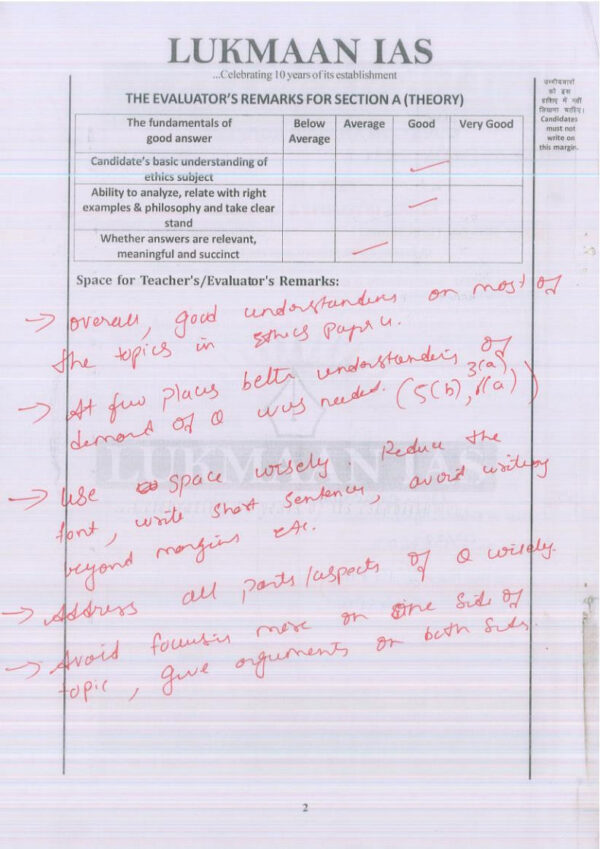 LUKMAAN IAS
...Celebrating 10 years of its establishment
THE EVALUATOR'S REMARKS FOR SECTION A (THEORY)
The fundamentals of good answer | Below Average | Average | Good | Very Good
Candidate's basic understanding of
ethics subject
Ability to analyze, relate with right
examples & philosophy and take clear
stand
Whether answers are relevant,
meaningful and succinct
उम्मीदवारों
को इस
हाशिए में नहीं
लिखना चाहिए।
Candidates
must not
write on
this margin.
Space for Teacher's/Evaluator's Remarks:
→ overall, good understanding on most of
the topics in Ethics paper
→ At few places better understanding of
demand of Q was needed. (5(b), 3(a)
→ Use space wisely. Reduce the
font, write short sentences, avoid writing
beyond margins etc.
→ Address all parts/aspects of Q wisely.
→ Avoid focusing more on one side of
topic, give arguments on both sides.
LUKMAAN IAS
2